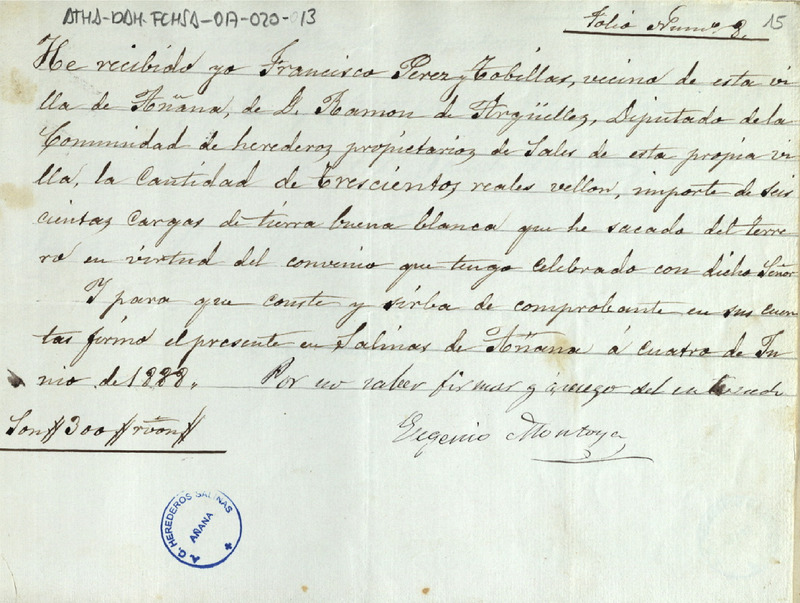 ATHA-DAH-FCHSA-OA-020-013
Folio Num.º 8. 15
He recibido yo Francisco Perez y Tobillas, vecino de esta vi
lla de Añana, de D. Ramon de Argüelles, Diputado de la
Comunidad de herederos propietarios de Sales de esta propia vi
lla, la cantidad de trescientos reales vellon, importe de seis
cientas cargas de tierra buena blanca que he sacado del terre
ro en virtud del convenio que tengo celebrado con dicho Señor
Y para que conste y sirba de comprobante en sus cuen
tas firmo el presente en Salinas de Añana á cuatro de Ju
nio de 1888. Por no saber firmar y á ruego del
Son 300 rvon
Eugenio Montoya
A. G. HEREDEROS SALINAS
AÑANA